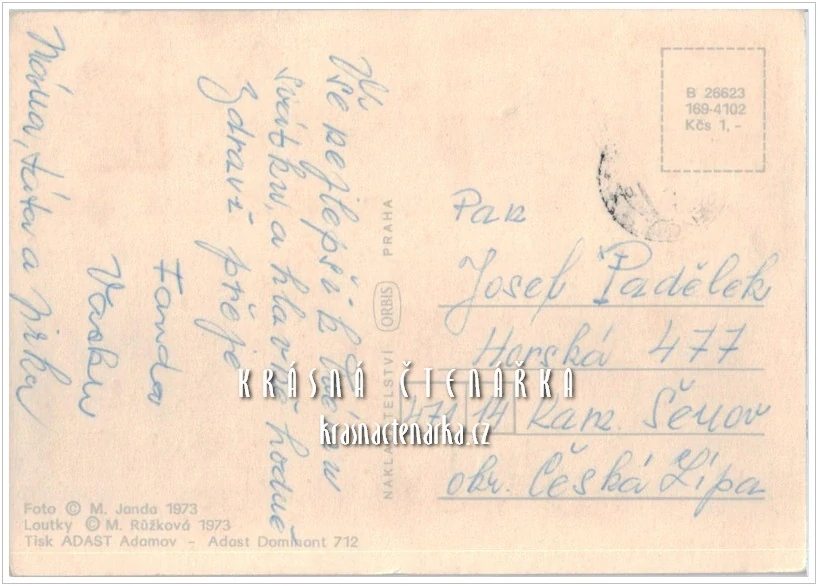 Vše nejlepší k Tvému
svátku, a hlavně hodně
zdraví přeje
Fanda
Vašku
Máma, táta a Jirka
NAKLADATELSTVÍ ORBIS PRAHA
B 26623
169-4102
Kčs 1,-
Pan
Josef Padělek
Horská 477
471 14 Kam. Šenov
okr. Česká Lípa
KRÁSNÁ ČTENÁŘKA
krasnactenarka.cz
Foto © M. Janda 1973
Loutky © M. Růžková 1973
Tisk ADAST Adamov - Adast Dominant 712